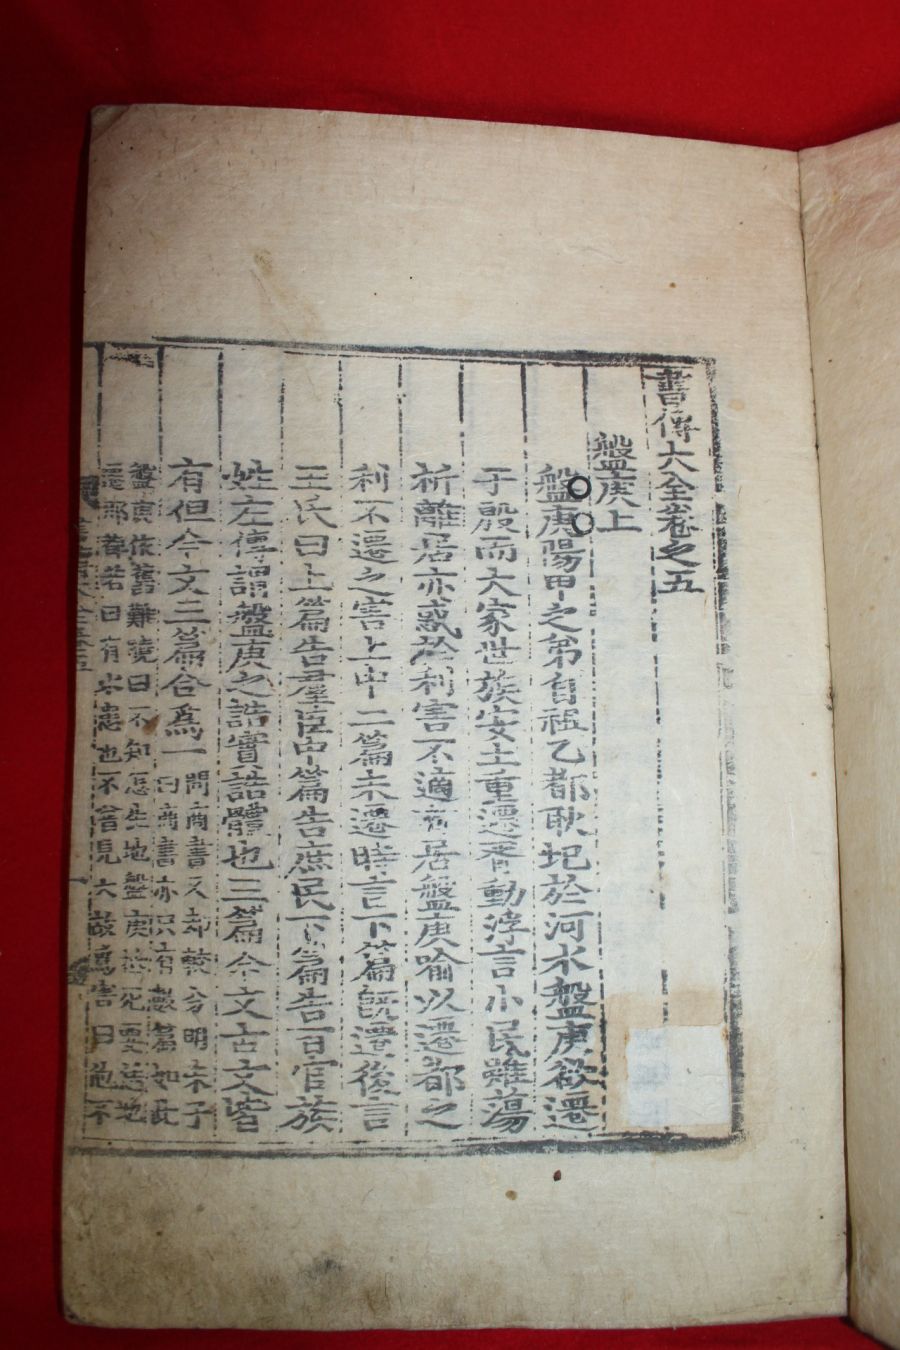 書傳大全卷之五
盤庚上
盤庚陽甲之弟自祖乙都耿圯於河水盤庚欲遷
于殷而大家世族安土重遷胥動浮言小民雖蕩
析離居亦惑於利害不適有居盤庚喻以遷都之
利不遷之害上中二篇未遷時言下篇旣遷後言
王氏曰上篇告羣臣中篇告庶民下篇告百官族
姓左傳謂盤庚之誥實誥體也三篇今文古文皆
有但今文三篇合爲一
問商書又却較分明朱子
曰商書亦只有數篇如此
盤庚依舊難曉曰不知怎生地盤庚抵死要遷
那都若曰有水患也不曾見大故爲害曰他不